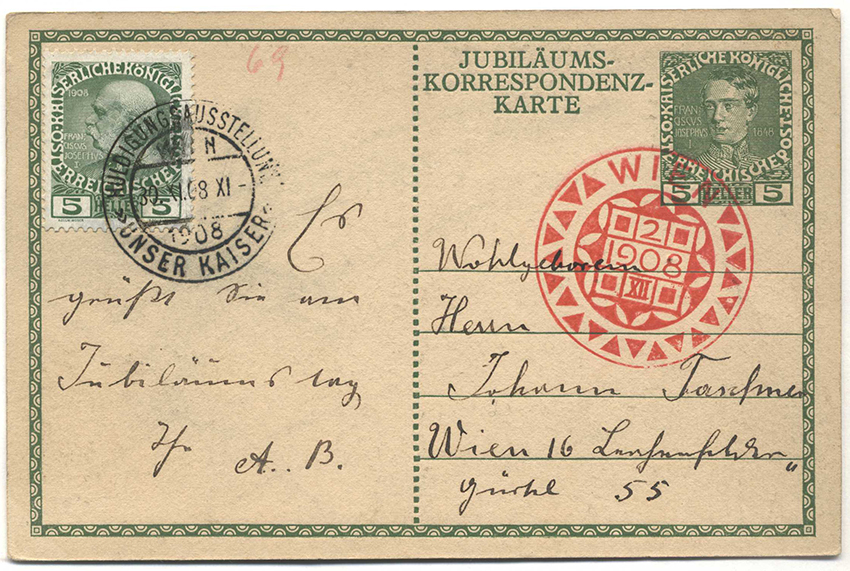 69
K.K.ÖSTERR.KAISERLICHE KÖNIGLICHE
1908
FRANCISCUS JOSEPHUS I
5 5
HULDIGUNGSAUSSTELLUNG
WIEN
30.XI.08 XI -
1908
"UNSER KAISER"
Es
grüßt Sie am
Jubiläumstag
Ihr
A.. B.
JUBILÄUMS-
KORRESPONDENZ-
KARTE
KAISERLICHE KÖNIGLICHE
ÖSTERREICHISCHE POST
FRANCISCUS JOSEPHUS I 1848
5 HELLER 5
WIEN
2
1908
XII
Wohlgeboren
Herrn
Johann Taschner
Wien 16 Lerchenfelder"
gürtel 55